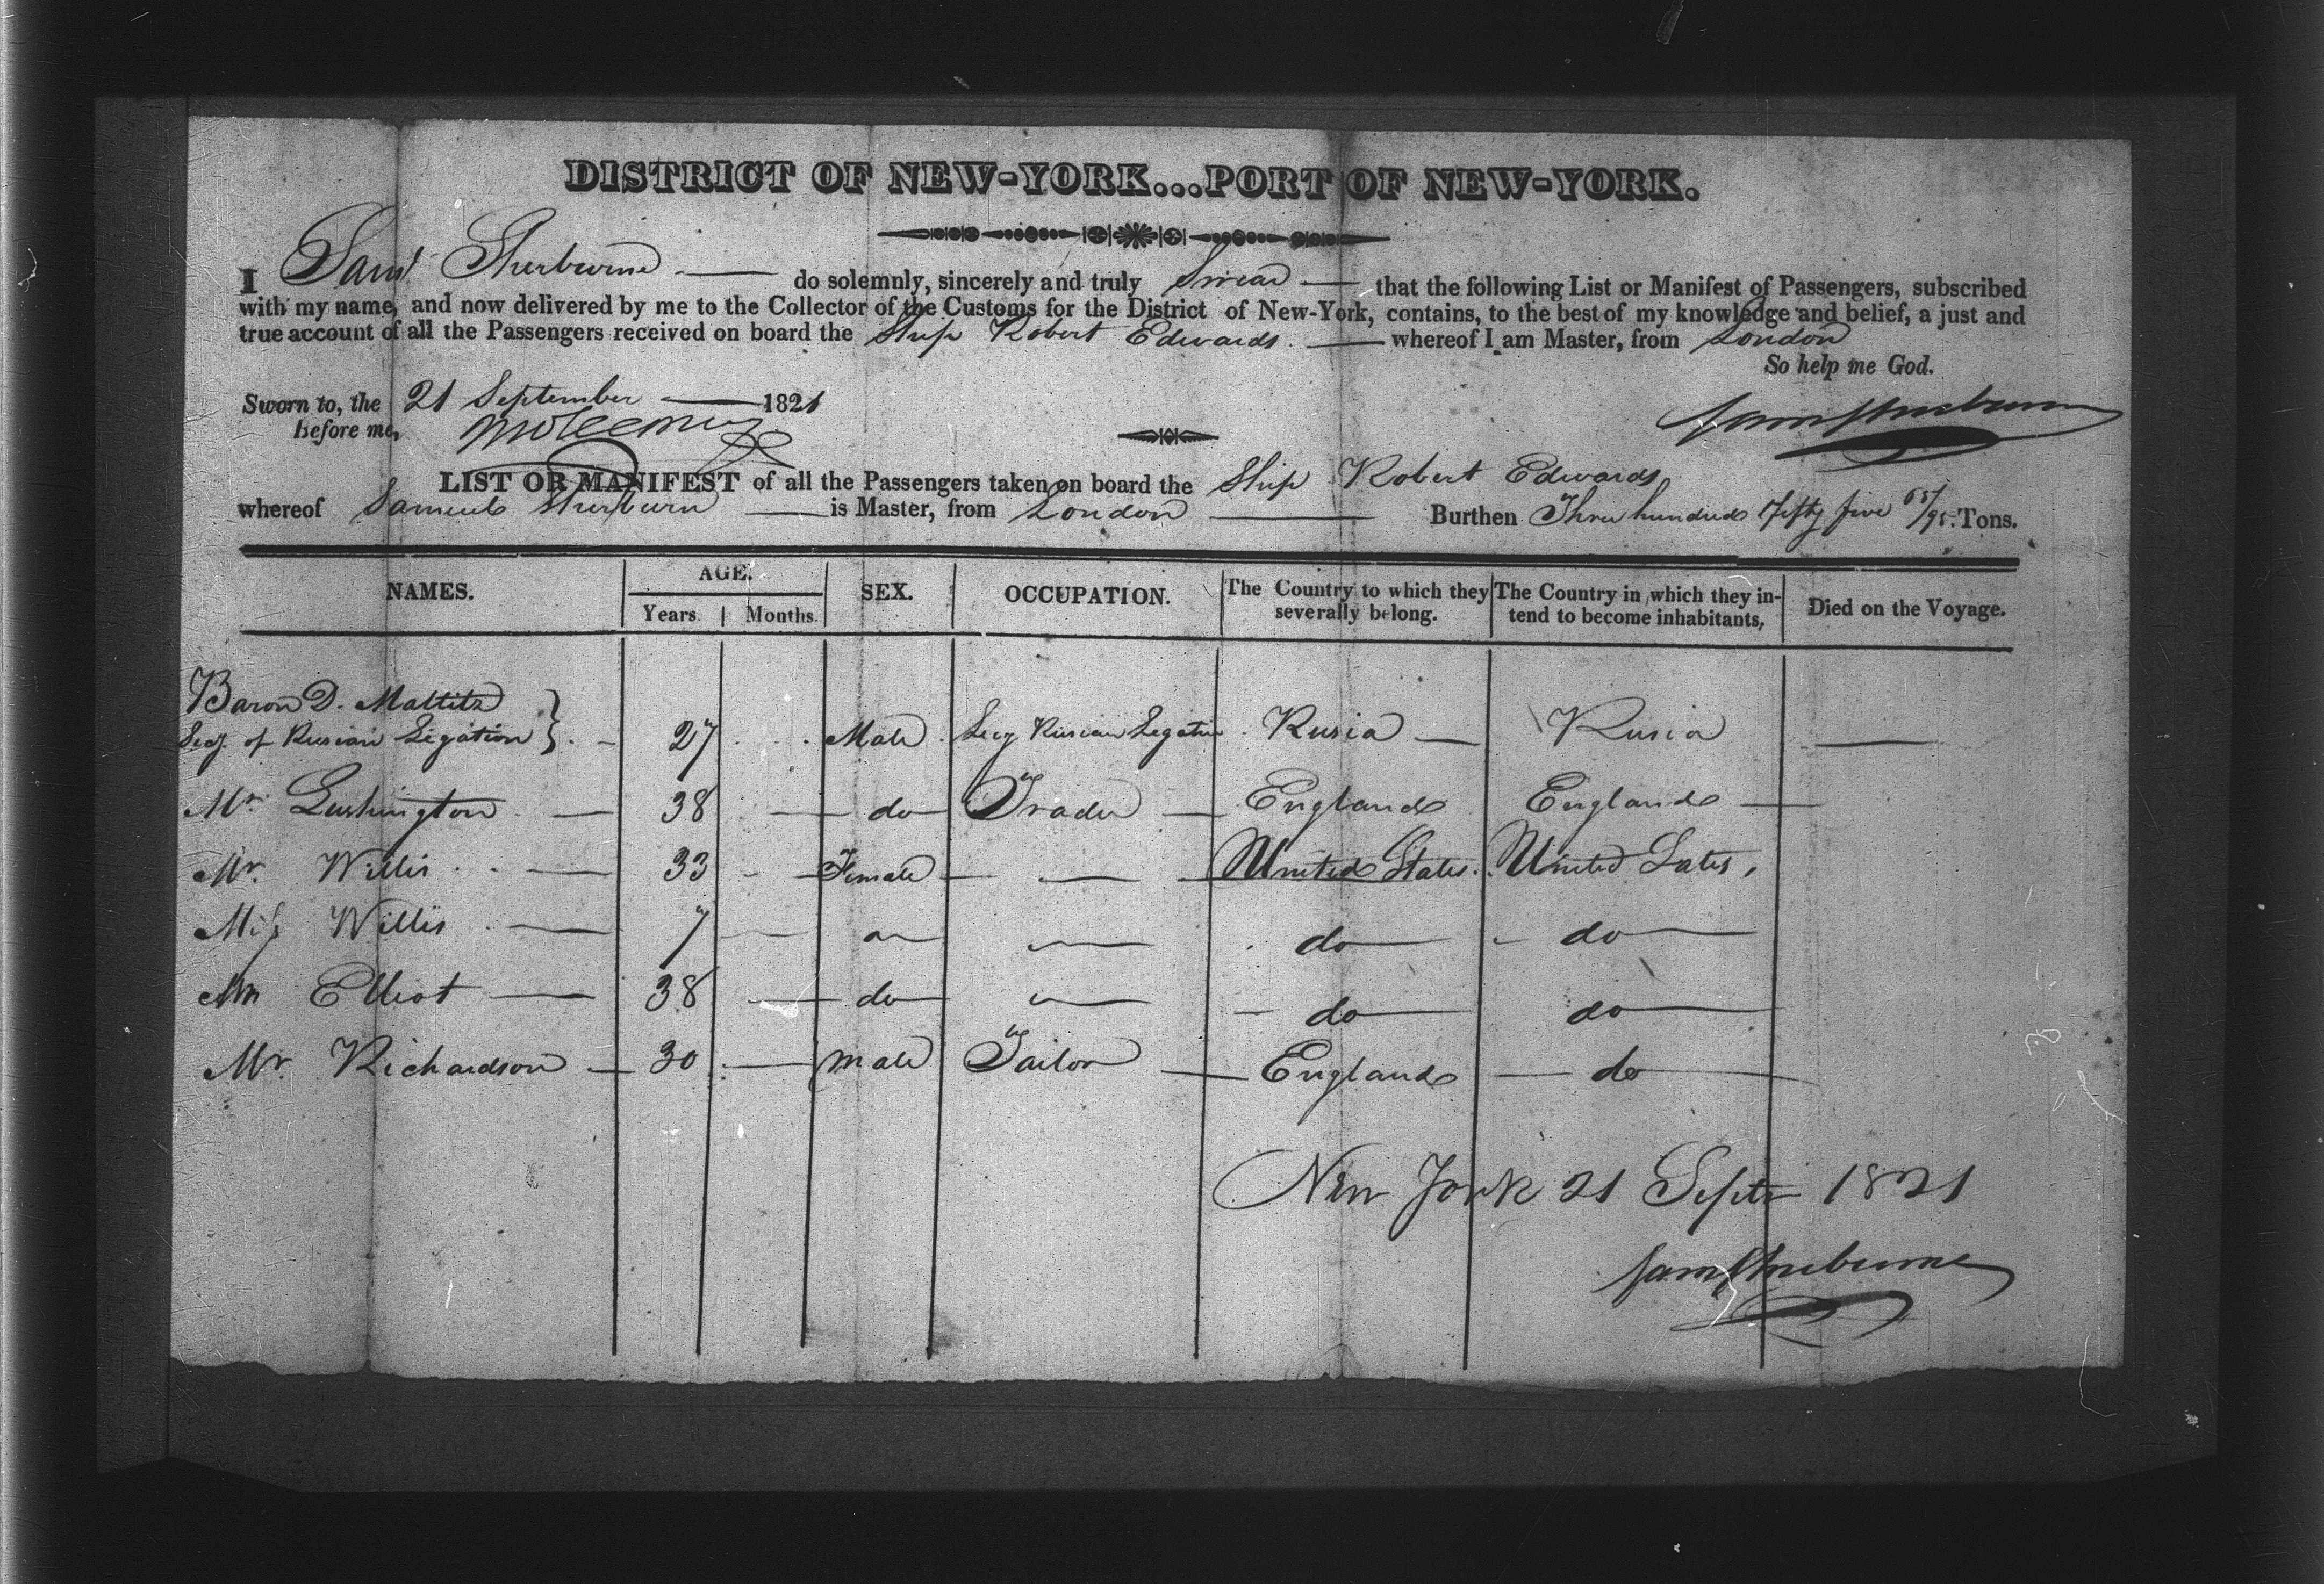 DISTRICT OF NEW-YORK...PORT OF NEW-YORK.
I Saml Sherburne do solemnly, sincerely and truly Swear that the following List or Manifest of Passengers, subscribed
with my name, and now delivered by me to the Collector of the Customs for the District of New-York, contains, to the best of my knowledge and belief, a just and
true account of all the Passengers received on board the Ship Robert Edwards. whereof I am Master, from London
So help me God.
Sworn to, the 21 September 1821
Before me,
Sam Sherburne
LIST OR MANIFEST of all the Passengers taken on board the Ship Robert Edwards
whereof Samuel Sherburn is Master, from London Burthen Three hundred Fifty five 65/95 Tons.
NAMES. AGE. Years. Months. SEX. OCCUPATION. The Country to which they severally belong. The Country in which they intend to become inhabitants, Died on the Voyage.
Baron D. Maltitz
Secy. of Rusian Legation 27 Male Secy Rusian Legation Rusia Rusia
Mr. Lushington 38 do Trader England England
Mr. Willis 33 Female United States. United Sates,
Miss Willis 7 do do
Elliot 38 do do do
Mr. Richardson 30 male Tailor England do
New York 21 Septr 1821
Sam Sherburne